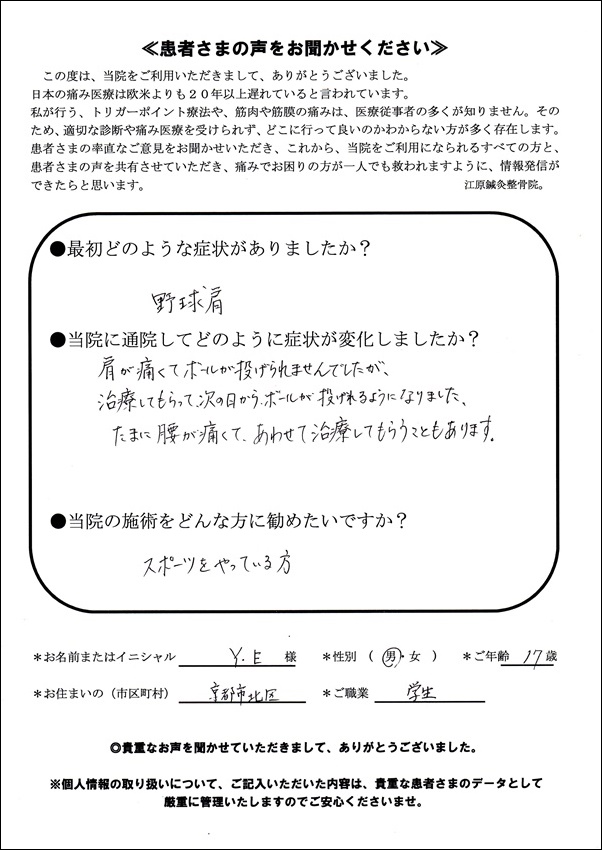 ≪患者さまの声をお聞かせください≫
この度は、当院をご利用いただきまして、ありがとうございました。
日本の痛み医療は欧米よりも２０年以上遅れていると言われています。
私が行う、トリガーポイント療法や、筋肉や筋膜の痛みは、医療従事者の多くが知りません。その
ため、適切な診断や痛み医療を受けられず、どこに行って良いのかわからない方が多く存在します。
患者さまの率直なご意見をお聞かせいただき、これから、当院をご利用になられるすべての方と、
患者さまの声を共有させていただき、痛みでお困りの方が一人でも救われますように、情報発信が
できたらと思います。 江原鍼灸整骨院。
●最初どのような症状がありましたか？
野球肩
●当院に通院してどのように症状が変化しましたか？
肩が痛くてボールが投げられませんでしたが、
治療してもらって次の日から、ボールが投げれるようになりました、
たまに腰が痛くて、あわせて治療してもらうこともあります。
●当院の施術をどんな方に勧めたいですか？
スポーツをやっている方
＊お名前またはイニシャル Y.E 様 ＊性別（ 男・女 ） ＊ご年齢 17歳
＊お住まいの（市区町村） 京都市北区 ＊ご職業 学生
◎貴重なお声を聞かせていただきまして、ありがとうございました。
※個人情報の取り扱いについて、ご記入いただいた内容は、貴重な患者さまのデータとして
厳重に管理いたしますのでご安心くださいませ。